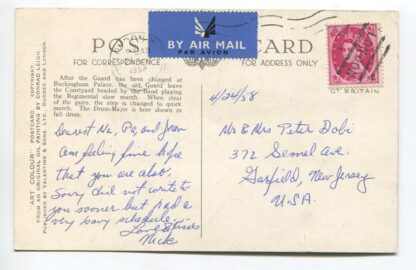 POST CARD
BY AIR MAIL
PAR AVION
FOR CORRESPONDENCE
FOR ADDRESS ONLY
"ART COLOUR" POSTCARD COPYRIGHT
FROM AN ORIGINAL OIL PAINTING BY CONRAD LEIGH.
PUBLISHED BY VALENTINE & SONS, LTD., DUNDEE AND LONDON
After the Guard has been changed at
Buckingham Palace, the old Guard leave
the Courtyard headed by the Band playing
the Regimental slow march. When clear
of the gates, the step is changed to quick
march. The Drum-Major is here shown in
full dress.
GT BRITAIN
4/24/58
Dearest Ma, Pa, and
Am feeling fine hope
that you are also.
Sorry did not write to
you sooner but had a
very heavy schedule.
Love & Kisses
Nick
Mr & Mrs Peter Dobi
372 Semel Ave.
Garfield, New Jersey
U.S.A.